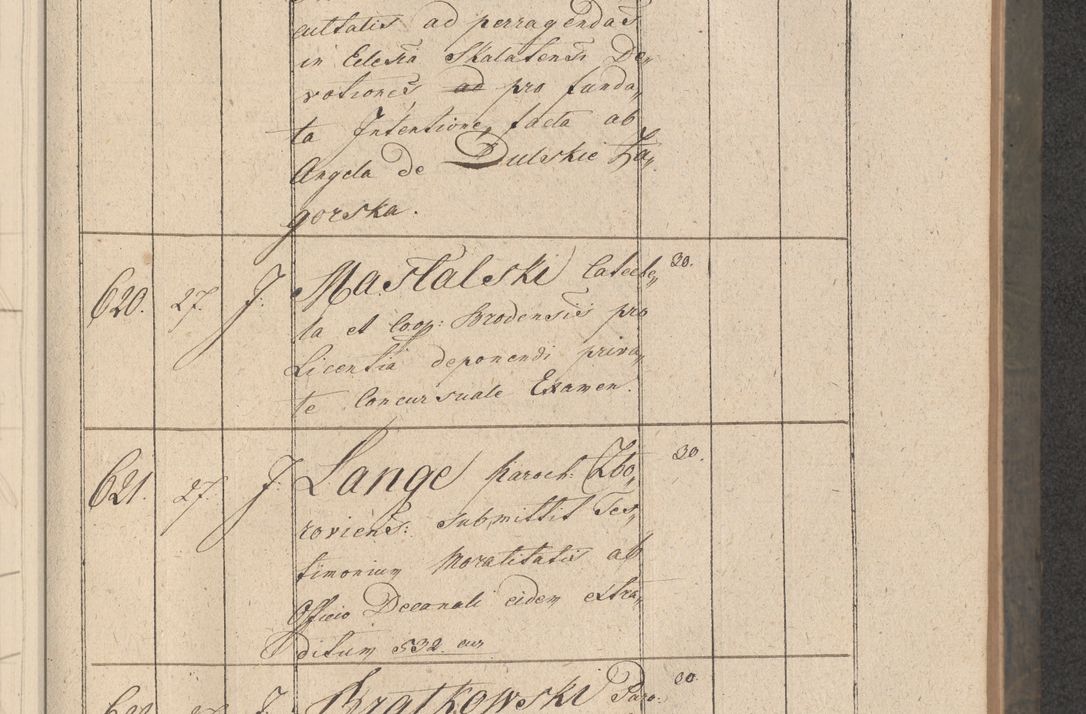 cultatis ad perragendas
in Eclesia Skalatensi De„
votiones ad pro funda„
ta Intentione, facta ab
Angela de Dulskie Za„
gorska.
620. 27. J. Mastalski Cateche„ 30.
ta et Coop: Brodensis pro
Licentia deponendi priva„
te Concursuale Examen.
621. 27. J. Lange Paroch: Zbo„ 30.
roviens: submittit Tes„
timonium Moralitatis ab
Officio Decanali eidem extra„
ditum 532. cur
J. Bratkowski Paro: 30.